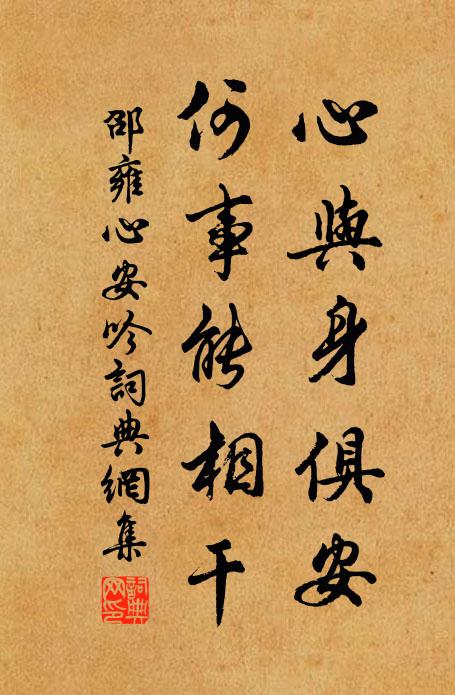 心與身俱安
何事能相干
邵雍心安吟詞典網集
詞典網印